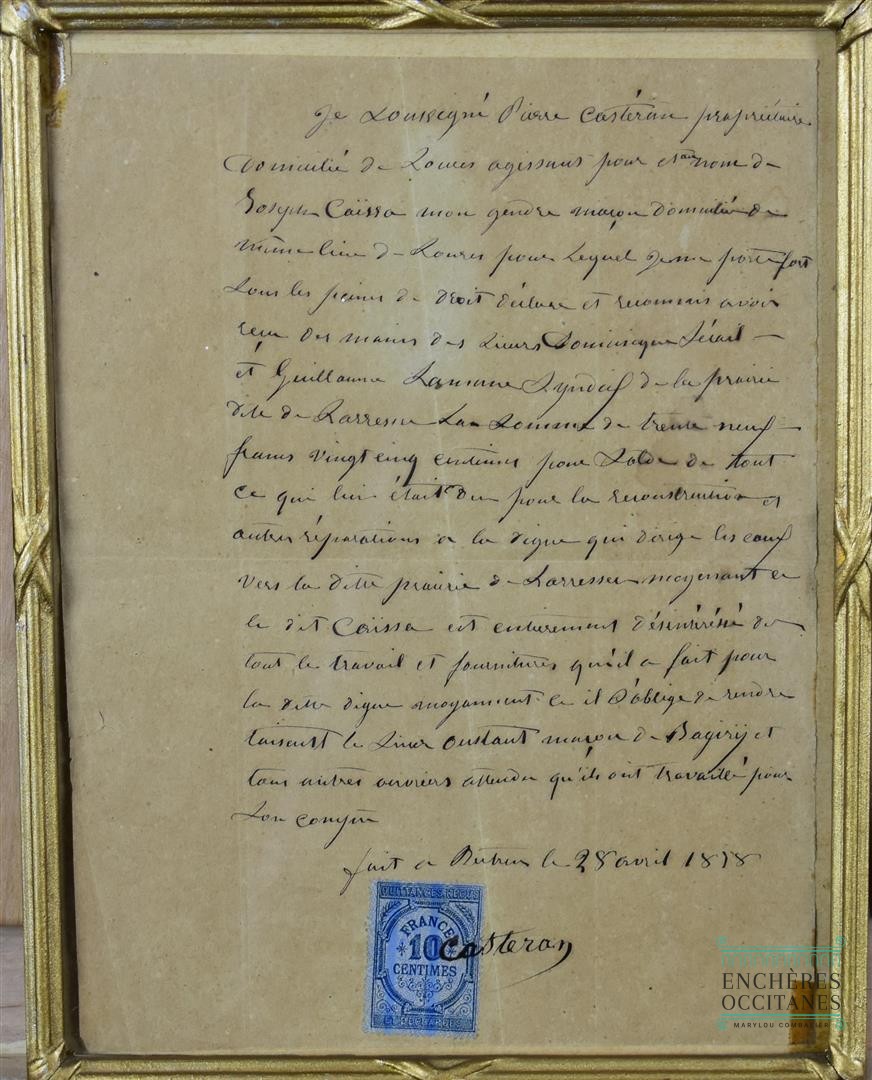 Je Soussigné Pierre Castéran propriétaire
Domicilié de Loures agissant pour et au nom de
Joseph Caïssa mon gendre maçon Domicilié de
même lieu de Loures pour Lequel je me porte fort
Sous les peines de droit déclare et reconnais avoir
reçu des mains des Sieurs Dominique
et Guillaume Syndics de la prairie
dite de Larresse La Somme de trente neuf
francs vingt cinq centimes pour Solde de tout
ce qui lui était Du pour la reconstruction et
autres réparations a la digue qui dirige les eaux
vers la ditte prairie de Larresse moyennant ce
le dit Caïssa est entierement désintéréssé de
tout le travail et fournitures qu'il a fait pour
la ditte digue moyennant ce il S'oblige de rendre
taisent le Sieur Oustant maçon de Bagiry et
tous autres ouvriers attendu qu'ils ont travaillé pour
Son compte
fait a le 28 avril 1878
Casteran
QUITTANCES, REÇUS
FRANCE
10
CENTIMES
ET DÉCHARGES
ENCHÈRES
OCCITANES
MARYLOU COMBALIER